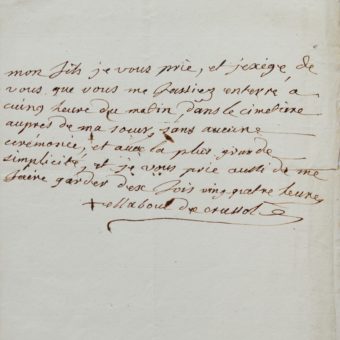 mon fils je vous prie, et j'exige de
vous que vous me fassiez enterré a
cinq heure du matin, dans le cimetiere
aupres de ma soeur, sans aucune
cérémonie, et avec la plus grande
simplicité, et je vous prie aussi de me
faire garder deux fois vingt quatre heures
de crussol